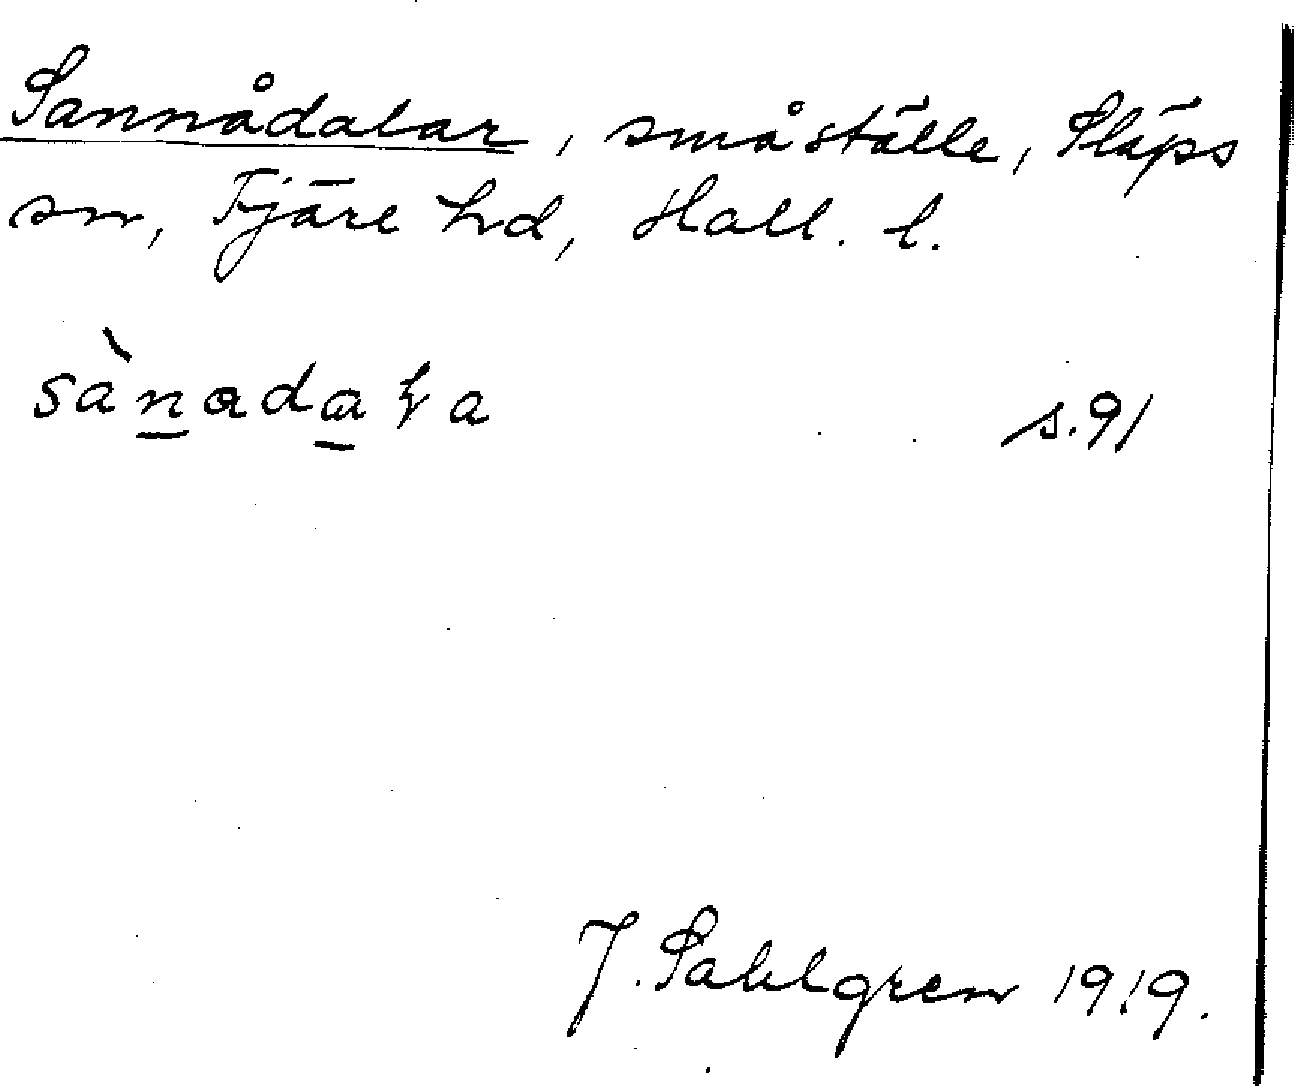 Sannådalar, småställe, Släps
sn, Fjäre hd, Hall. l.
sànadaɫa
s.91
J. Sahlgren 1919.